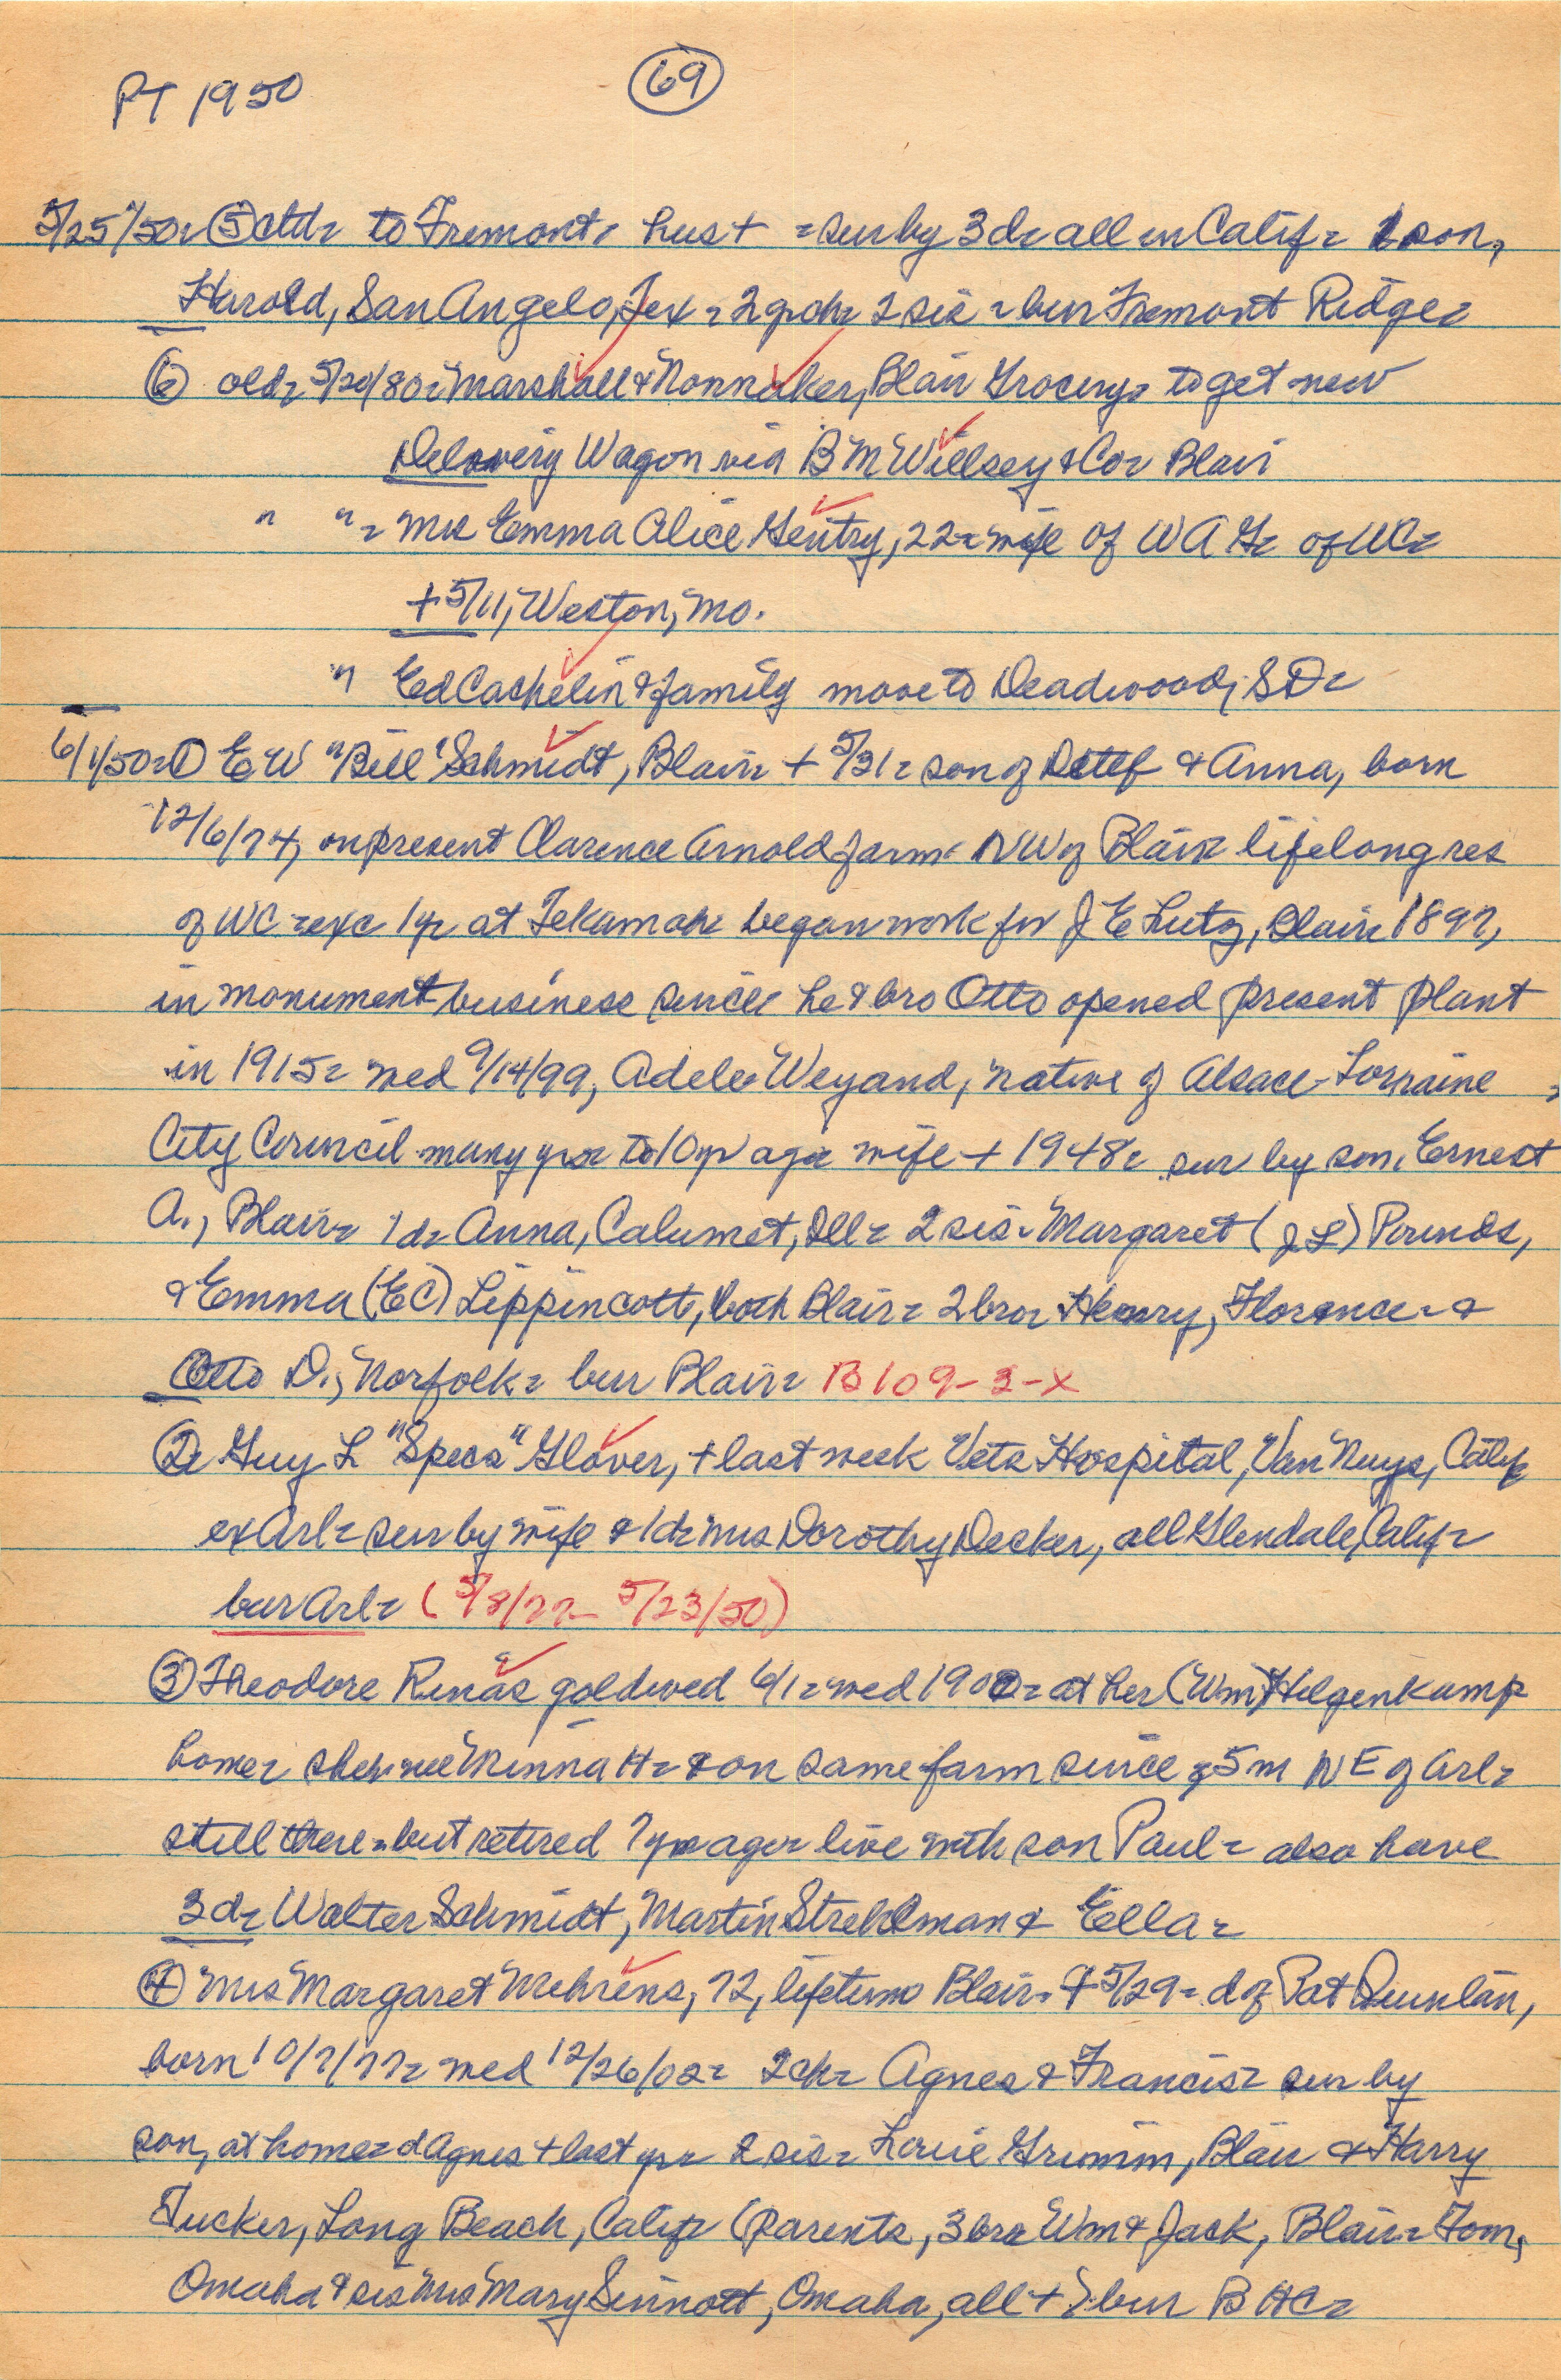 PT 1950 69
5/25/50- ⑤ ctd- to Fremont- hus + - sur by 3 d- all in Calif- 1 son,
Harold, San Angelo, Tex- 2 grch- 2 sis - bur Fremont Ridge-
⑥ old- 5/20/80- Marshall & Nonnaker, Blair Grocery- to get new
Delivery Wagon via B M Willsey & Co- Blair
" " - Mrs Emma Alice Gentry, 22- wife of W A G- of WC-
+ 5/11, Weston, Mo.
" Ed Cashelin & family move to Deadwood, SD-
6/1/50- ① E W "Bill" Schmidt, Blair- + 5/31- son of Detlef & Anna, born
12/6/74, on present Clarence Arnold farm- NW of Blair- lifelong res
of WC - exc 1 yr at Tekamah- began work for J E Lutz, Blair- 1897,
in monument business since- he & bro Otto opened present plant
in 1915- wed 9/14/99, Adele Weyand, native of Alsace-Lorraine-
City Council many yrs- to 10 yr ago- wife + 1948- sur by son, Ernest
A., Blair- 1 d- Anna, Calumet, Ill- 2 sis- Margaret (J L) Pounds,
& Emma (E C) Lippincott, both Blair- 2 bro- Henry, Florence- &
Otto D., Norfolk- bur Blair- B 109-3-X
②- Guy L "Specs" Glover, + last week Vets Hospital, Van Nuys, Calif-
ex Arl- sur by wife & 1 d- Mrs Dorothy Decker, all Glendale, Calif-
bur Arl- (5/8/77- 5/23/50)
③ Theodore Rinas goldwed 6/1- wed 1900- at her (Wm) Hilgenkamp
home- she nee Minna H- & on same farm since- 5 m NE of Arl-
still there- but retired 7 yrs ago- live with son Paul- also have
3 d- Walter Schmidt, Martin Strehlman & Ella-
④ Mrs Margaret Mehrens, 72, lifetime Blair- + 5/29- d of Pat Quinlan,
born 10/7/77- wed 12/26/02- 2 ch- Agnes & Francis- sur by
son, at home- d Agnes + last yr- 2 sis- Louie Grimm, Blair & Harry
Tucker, Long Beach, Calif- (parents, 3 bro- Wm & Jack, Blair- Tom,
Omaha & sis Mrs Mary Sinnott, Omaha, all +) bur B HC-